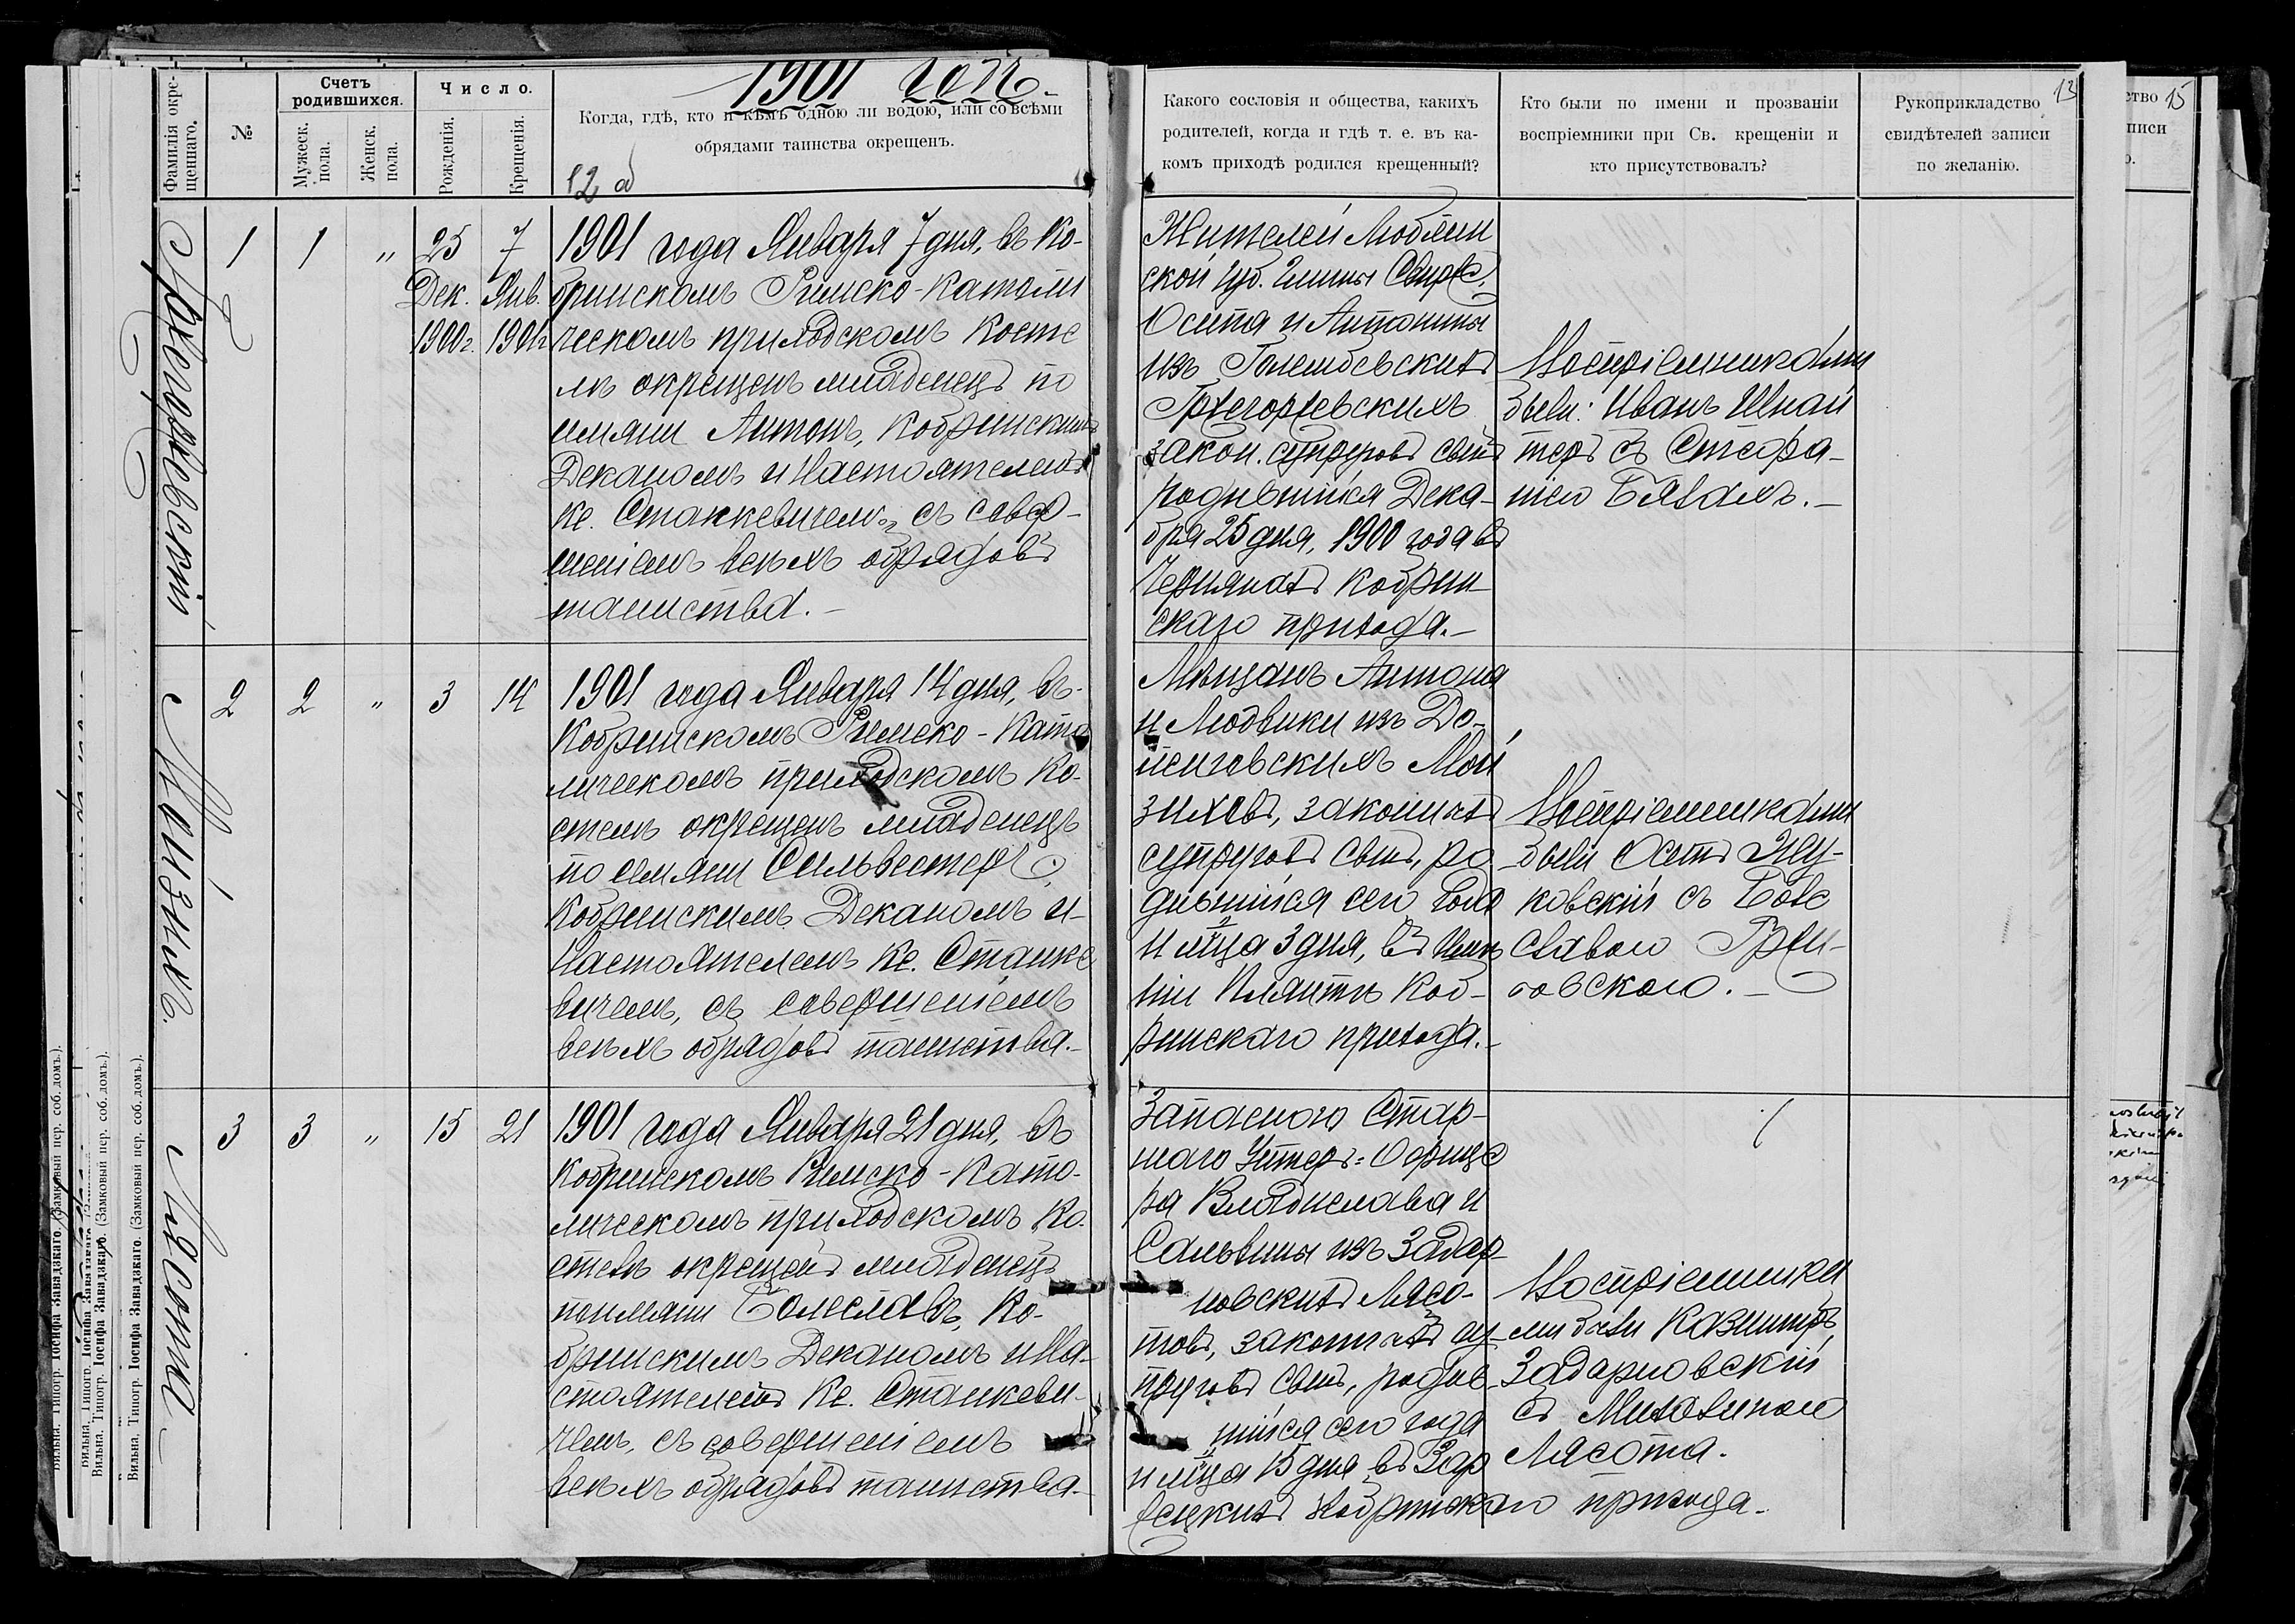 1901 годъ.
Фамилія окрещеннаго.
№
Счетъ родившихся.
Мужеск. пола.
Женск. пола.
Число.
Рожденія.
Крещенія.
Когда, гдѣ, кто и кѣмъ одною ли водою, или со всѣми
обрядами таинства окрещенъ.
12 об
Какого сословія и общества, какихъ
родителей, когда и гдѣ т. е. въ ка-
комъ приходѣ родился крещенный?
Кто были по имени и прозваніи
воспріемники при Св. крещеніи и
кто присутствовалъ?
Рукоприкладство
свидѣтелей записи
по желанію.
13
15
1 1 " 25 7
Дек. Янв.
1900 г. 1901 г
1901 года Января 7 дня, въ Ко-
бринскомъ Римско-Католи
ческомъ приходскомъ Косте
лѣ окрещенъ младенецъ по
имяни Антонъ, Кобринскимъ
Деканомъ и Настоятелемъ
Кс. Станкевичемъ, съ совер-
шеніемъ всѣхъ обрядовъ
таинства.-
Жителей Люблин
ской губ. гмины
Осипа и Антонины
изъ
Гржегоржевскихъ
закон. супруговъ сынъ
родившійся Дека-
бря 25 дня, 1900 года въ
Чернянахъ Кобрин-
скаго прихода.-
Воспріемниками
были: Иванъ Шнай
теръ съ Стефа-
ніею
2 2 " 3 14
Мойзихъ.
1901 года Января 14 дня, въ-
Кобринскомъ Римско-Като
лическомъ приходскомъ Ко-
стелѣ окрещенъ младенецъ
по имяни Сильвестеръ,
Кобринскимъ Деканомъ и-
Настоятелемъ Кс. Станке
вичемъ, съ совершеніемъ
всѣхъ обрядовъ таинства.-
Мѣщанъ Антона
и Людвики изъ До-
Мой
зиховъ, законныхъ
супруговъ сынъ, ро-
дившійся сего года
и мѣца 3 дня, въ
Коб-
ринскаго прихода.-
Воспріемниками
были Осипъ
ковскій съ Боле
славою
ковскою.-
3 3 " 15 21
Лясота
1901 года Января 21 дня, въ
Кобринскомъ Римско-Като-
лическомъ приходскомъ Ко-
стелѣ окрещенъ младенецъ
по имяни Болеславъ, Ко-
бринскимъ Деканомъ и На-
стоятелемъ Кс. Станкеви-
чемъ, съ совершеніемъ
всѣхъ обрядовъ таинства.-
Запаснаго Стар-
шаго Унтеръ-Офице
ра Владислава и
Сальвины изъ Задар-
новскихъ Лясо-
товъ, законныхъ су-
пруговъ сынъ, родив-
шійся сего года
и мѣца 15 дня въ
Кобринскаго прихода.-
Воспріемника
ми были Казимиръ
Задарновскій
съ Михалиною
Лясота.
Вильна. Типогр. Іосифа Завадзкаго. (Замковый пер. соб. домъ.).
Вильна. Типогр. Іосифа Завадзкаго. (Замковый пер. соб. домъ.).
Вильна. Типогр. Іосифа Завадзкаго. (Замковый пер. соб. домъ.).